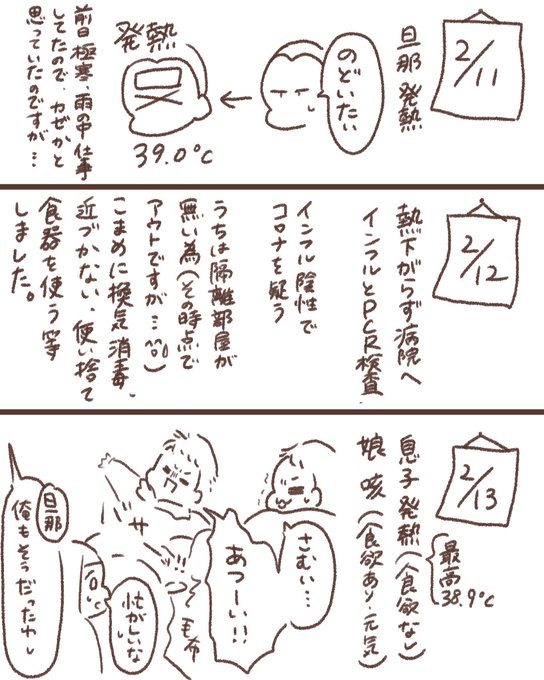 2/11
旦那 発熱
のどいたい
発熱
39.0℃
前日極寒、雨の中仕事
してたので、カゼかと
思っていたのですが…
2/12
熱下がらず病院へ
インフルとPCR検査
インフル陰性で
コロナを疑う
うちは隔離部屋が
無い為(その時点で
アウトですが…)
こまめに換気消毒、
近づかない、使い捨て
食器を使う等
しました。
2/13
息子 発熱(食欲なし)
最高
38.9℃
娘 咳(食欲あり・元気)
さむい…
あつーい!!
バサ
毛布
忙がしいな
旦那
俺もそうだったわー